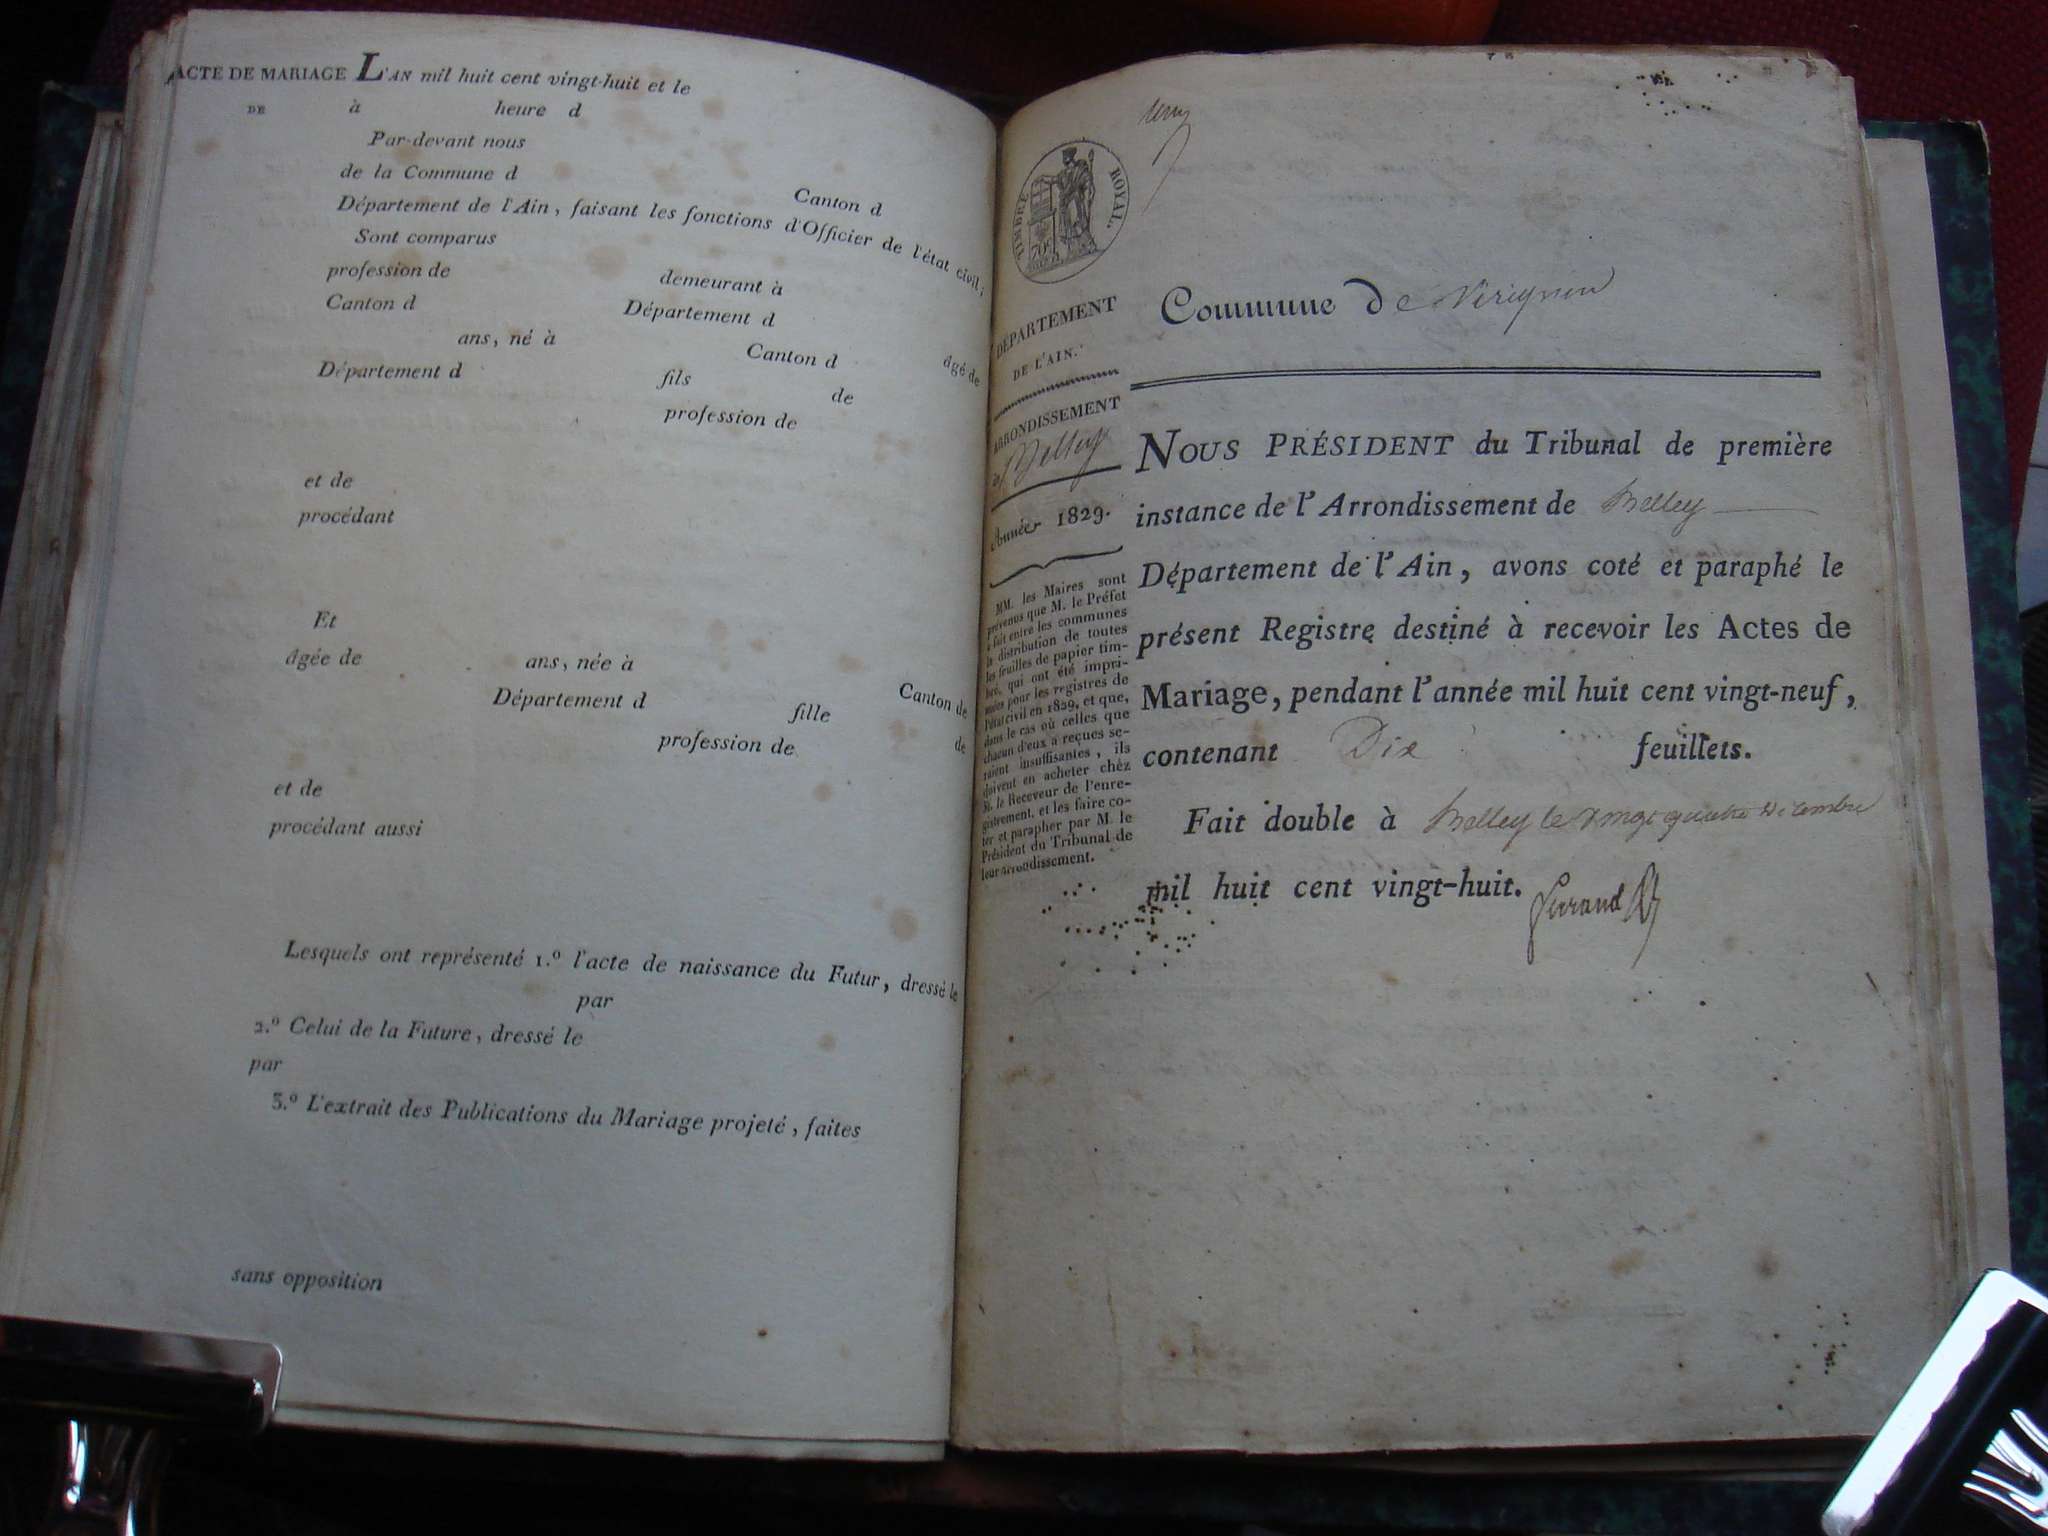 ACTE DE MARIAGE L'AN mil huit cent vingt-huit et le
DE à heure d
Par-devant nous
de la Commune d Canton d
Département de l'Ain, faisant les fonctions d'Officier de l'état civil;
Sont comparus
profession de demeurant à
Canton d Département d âgé de
ans, né à Canton d
Département d fils de
profession de
et de
procédant
Et
âgée de ans, née à Canton de
Département d fille de
profession de
et de
procédant aussi
Lesquels ont représenté 1.º l'acte de naissance du Futur, dressé le
par
2.º Celui de la Future, dressé le
par
3.º L'extrait des Publications du Mariage projeté, faites
sans opposition
TIMBRE ROYAL.
70c
DÉPARTEMENT
DE L'AIN.
ARRONDISSEMENT
de Belley
Année 1829.
MM. les Maires sont
prévenus que M. le Préfet
a fait entre les communes
la distribution de toutes
les feuilles de papier tim-
bré, qui ont été impri-
mées pour les registres de
l'état civil en 1829, et que,
dans le cas où celles que
chacun d'eux a reçues se-
raient insuffisantes, ils
doivent en acheter chez
M. le Receveur de l'enre-
gistrement, et les faire co-
ter et parapher par M. le
Président du Tribunal de
leur arrondissement.
Commune De Virignin
NOUS PRÉSIDENT du Tribunal de première
instance de l'Arrondissement de Belley
Département de l'Ain, avons coté et paraphé le
présent Registre destiné à recevoir les Actes de
Mariage, pendant l'année mil huit cent vingt-neuf,
contenant Dix feuillets.
Fait double à Belley le vingt quatre Décembre
mil huit cent vingt-huit.